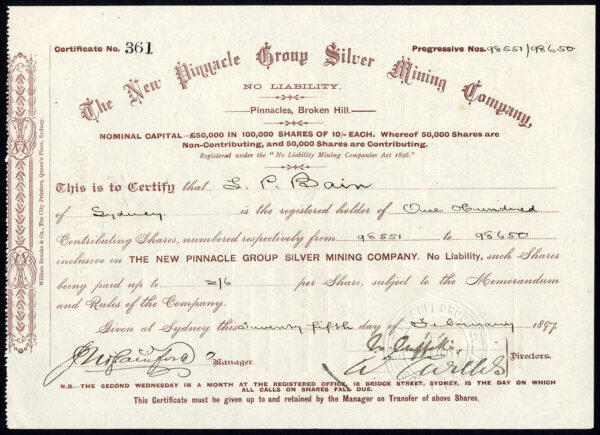 Certificate No. 361
Progressive Nos. 98551/98650
The New Pinnacle Group Silver Mining Company,
NO LIABILITY.
Pinnacles, Broken Hill.
NOMINAL CAPITAL £50,000 IN 100,000 SHARES OF 10/- EACH. Whereof 50,000 Shares are
Non-Contributing, and 50,000 Shares are Contributing.
Registered under the "No Liability Mining Companies Act 1896."
This is to Certify that L. P. Bain
of Sydney is the registered holder of One Hundred
Contributing Shares, numbered respectively from 98551 to 98650
inclusive in THE NEW PINNACLE GROUP SILVER MINING COMPANY. No Liability, such Shares
being paid up to 2/6 per Share, subject to the Memorandum
and Rules of the Company.
Given at Sydney this twenty fifth day of February 1897
Manager.
Directors.
N.B. THE SECOND WEDNESDAY IN A MONTH AT THE REGISTERED OFFICE, 18 BRIDGE STREET, SYDNEY, IS THE DAY ON WHICH
ALL CALLS ON SHARES FALL DUE.
This Certificate must be given up to and retained by the Manager on Transfer of above Shares.
William Brooks & Co., The City Printers, Queen's Place, Sydney.